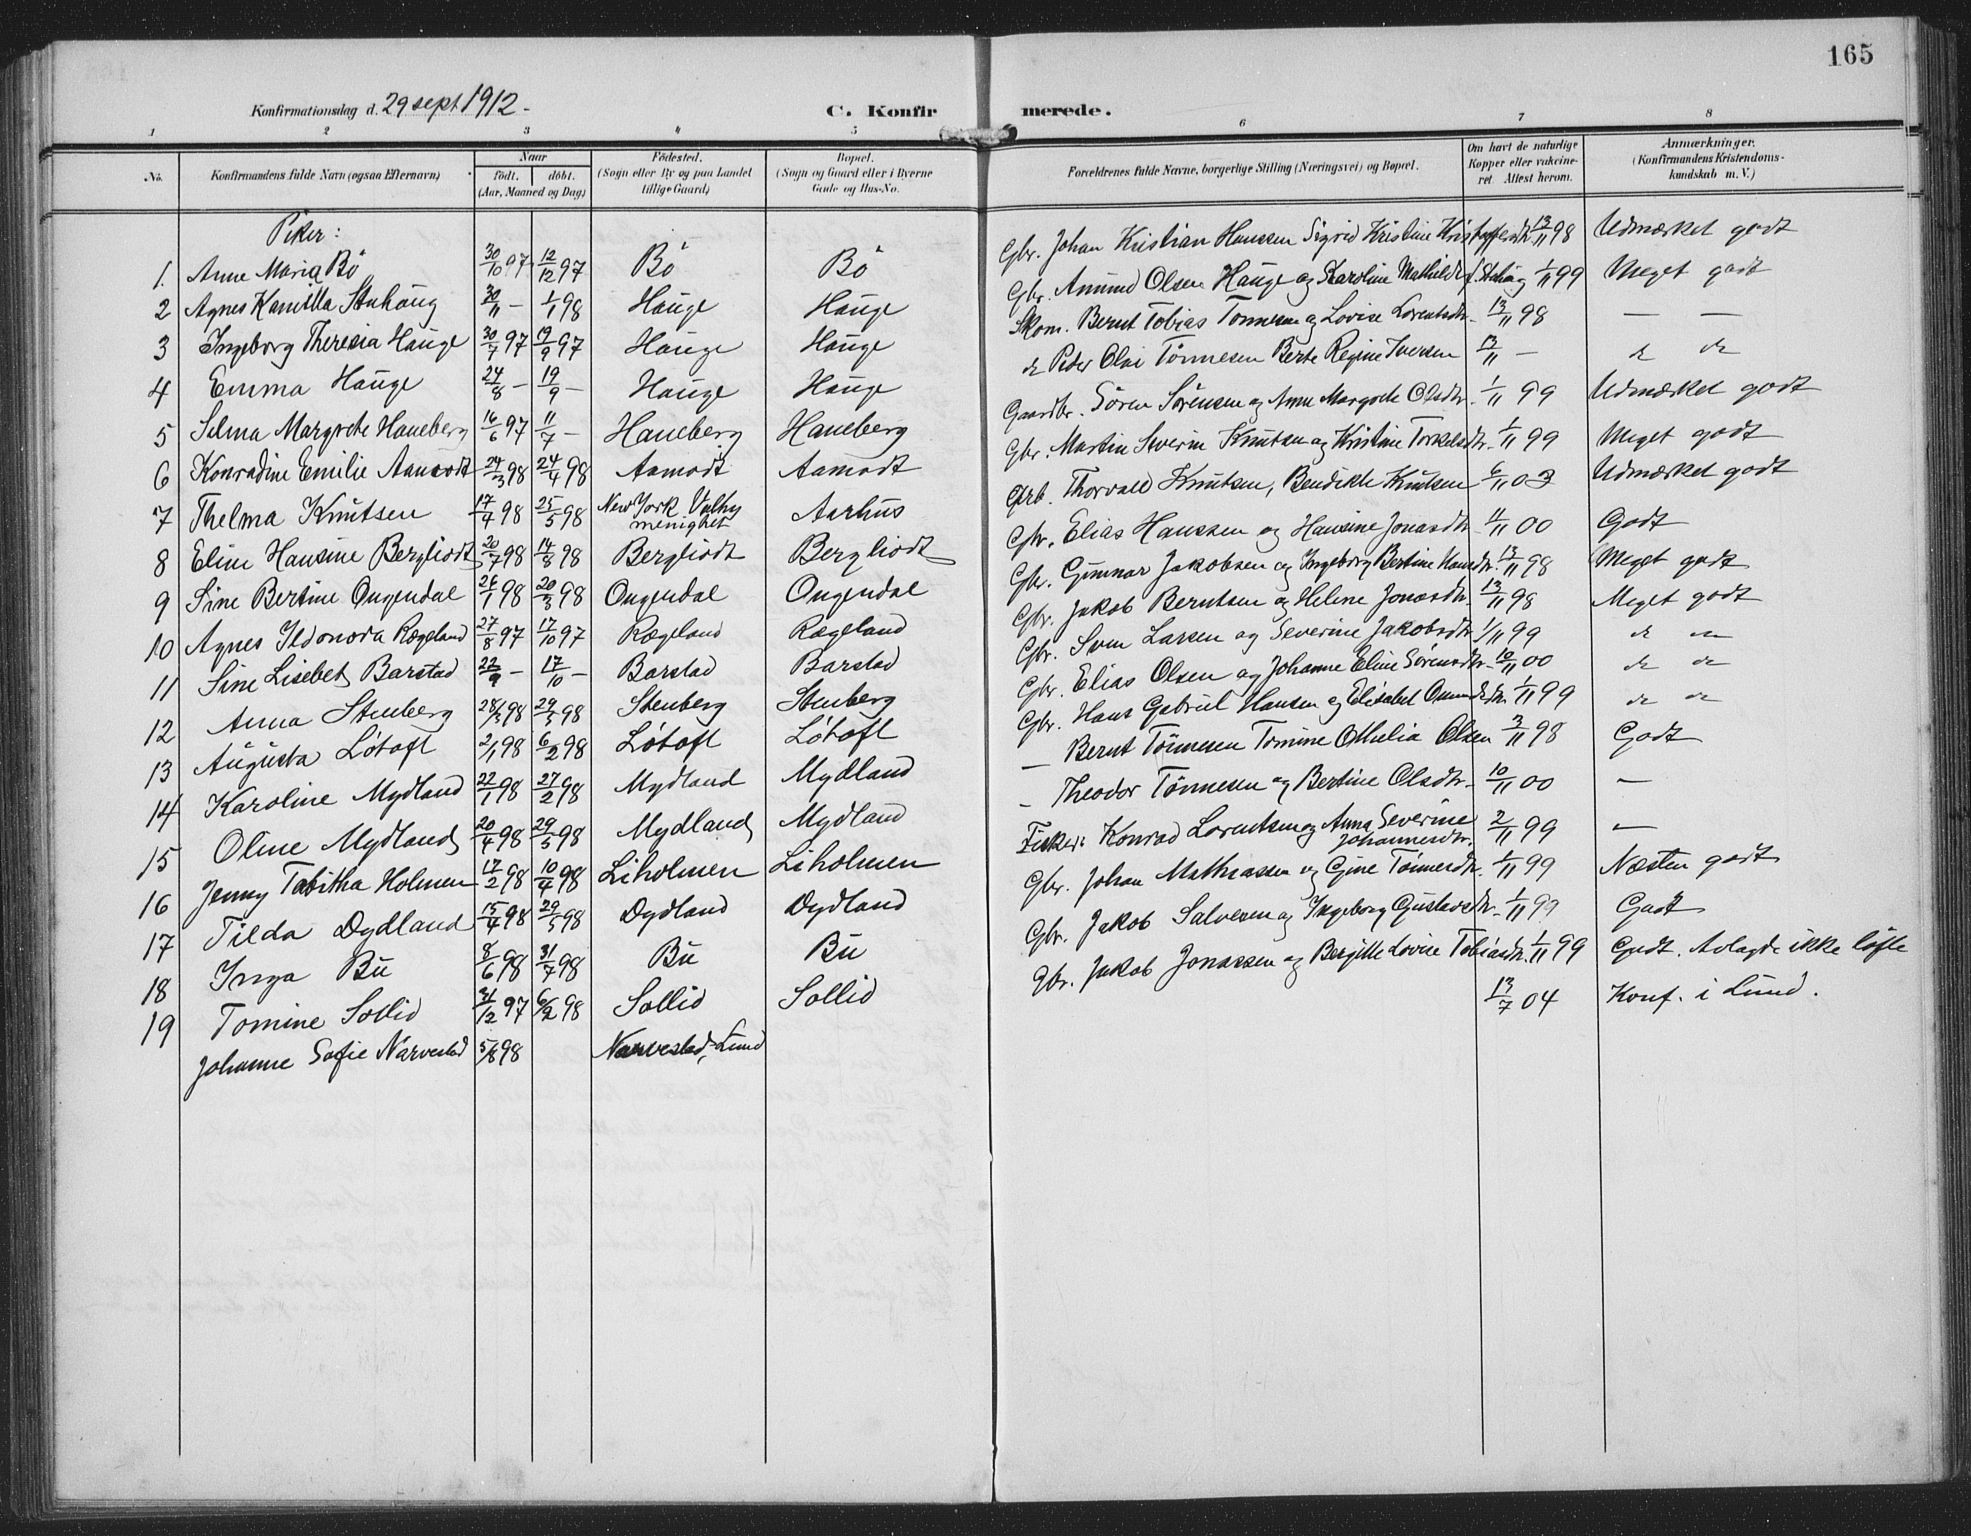 165
Konfirmationsdag d. 29 sept 1912.
C. Konfirmerede.
1 2 3 4 5 6 7 8
No. Konfirmandens fulde Navn (ogsaa Efternavn) Naar født. døbt. (Aar, Maaned og Dag) Fødested. (Sogn eller By og paa Landet tillige Gaard) Bopæl. (Sogn og Gaard eller i Byerne Gade og Hus-No. Forældrenes fulde Navne, borgerlige Stilling (Næringsvei) og Bopæl. Om havt de naturlige Kopper eller vakcineret. Attest herom. Anmærkninger. (Konfirmandens Kristendomskundskab m. V.)
Piker:
1. Anne Maria Bö 30/10 97 12/12 97 Bö Bö Gbr. Johan Kristian Hanssen Sigrid Kristine Kristoffersdtr. 13/11 98 Udmærket godt
2 Agnes Kamilla Stuhaug 30/11 – 1/1 98 Hauge Hauge Gbr. Amund Olsen Hauge og Karoline Mathilde 1/11 99 Meget godt
3 Ingeborg Theresia Hauge 30/7 97 19/9 97 Hauge Hauge Skom. Bernt Tobias Tönnesen og Lovise Lorentsdtr. 13/11 98 — —
4 Emma Hauge 24/8 – 19/9 – Hauge Hauge do Peder Olai Tönnesen Berte Regine Iversen 13/11 – do do
5 Selma Margrete Haneberg 16/6 97 11/7 – Haneberg Haneberg Gaardbr. Sören Sörensen og Anne Margrete Olsdtr. 1/11 99 Udmærket godt
6 Konradine Emilie Aamodt 24/3 98 24/4 98 Aamodt Aamodt Gbr. Martin Severin Knutsen og Kristine Torkelsdtr. 1/11 99 Meget godt
7 Thelma Knutsen 17/4 98 25/5 98 New York Valby menighet Aarhus Arb. Thorvald Knutsen, Bendikte Knutsen 6/11 03 Udmærket godt
8 Eline Hansine Bergliodt 20/7 98 14/8 98 Bergliodt Bergliodt Gbr. Elias Hanssen og Hansine Jonasdtr. 11/11 00 Godt
9 Sine Bertine Ougendal 26/1 98 20/3 98 Ougendal Ougendal Gbr. Gunnar Jakobsen og Ingeborg Bertine Hansdtr. 13/11 98 Meget godt
10 Agnes Ildonora Rægeland 27/8 97 17/10 97 Rægeland Rægeland Gbr. Jakob Berntsen og Helene Jonasdtr. 13/11 98 Meget godt
11 Sine Lisebet Barstad 22/9 – 17/10 – Barstad Barstad Gbr. Sven Larsen og Severine Jakobsdtr. 1/11 99 do do
12 Anna Stenberg 28/3 98 29/5 98 Stenberg Stenberg Gbr. Elias Olsen og Johanne Eline Sörensdtr. 10/11 00 do do
13 Augusta Lótoft 2/1 98 6/2 98 Lótoft Lótoft Gbr. Hans Gabriel Hansen og Elisabet 1/11 99 do do
14 Karoline Mydland 22/1 98 27/2 98 Mydland Mydland — Bernt Tönnesen Tomine Othelia Olsen 3/11 98 Godt
15 Oline Mydland 20/4 98 29/5 98 Mydland Mydland — Theodor Tönnesen og Bertine Olsdtr. 10/11 00 —
16 Jenny Tabitha Holmen 17/2 98 10/4 98 Liholmen Liholmen Fisker. Konrad Lorentsen og Anna Severine Johannesdtr. 2/11 99 —
17 Tilda Dydland 15/4 98 29/5 98 Dydland Dydland Gbr. Johan Mathiassen og Gine Tönnesdtr. 1/11 99 Næsten godt
18 Inga Bu 8/6 98 31/7 98 Bu Bu Gbr. Jakob Salvesen og Ingeborg Gustavsdtr. 1/11 99 Godt
19 Tomine Sollid 31/12 97 6/2 98 Sollid Sollid Gbr. Jakob Jonassen og Bergitte Lovise Tobiasdtr. 1/11 99 Godt. Avlagde ikke löfte
Johanne Sofie Narvestad 5/8 98 Narvestad, Lund 13/7 04 Konf. i Lund.